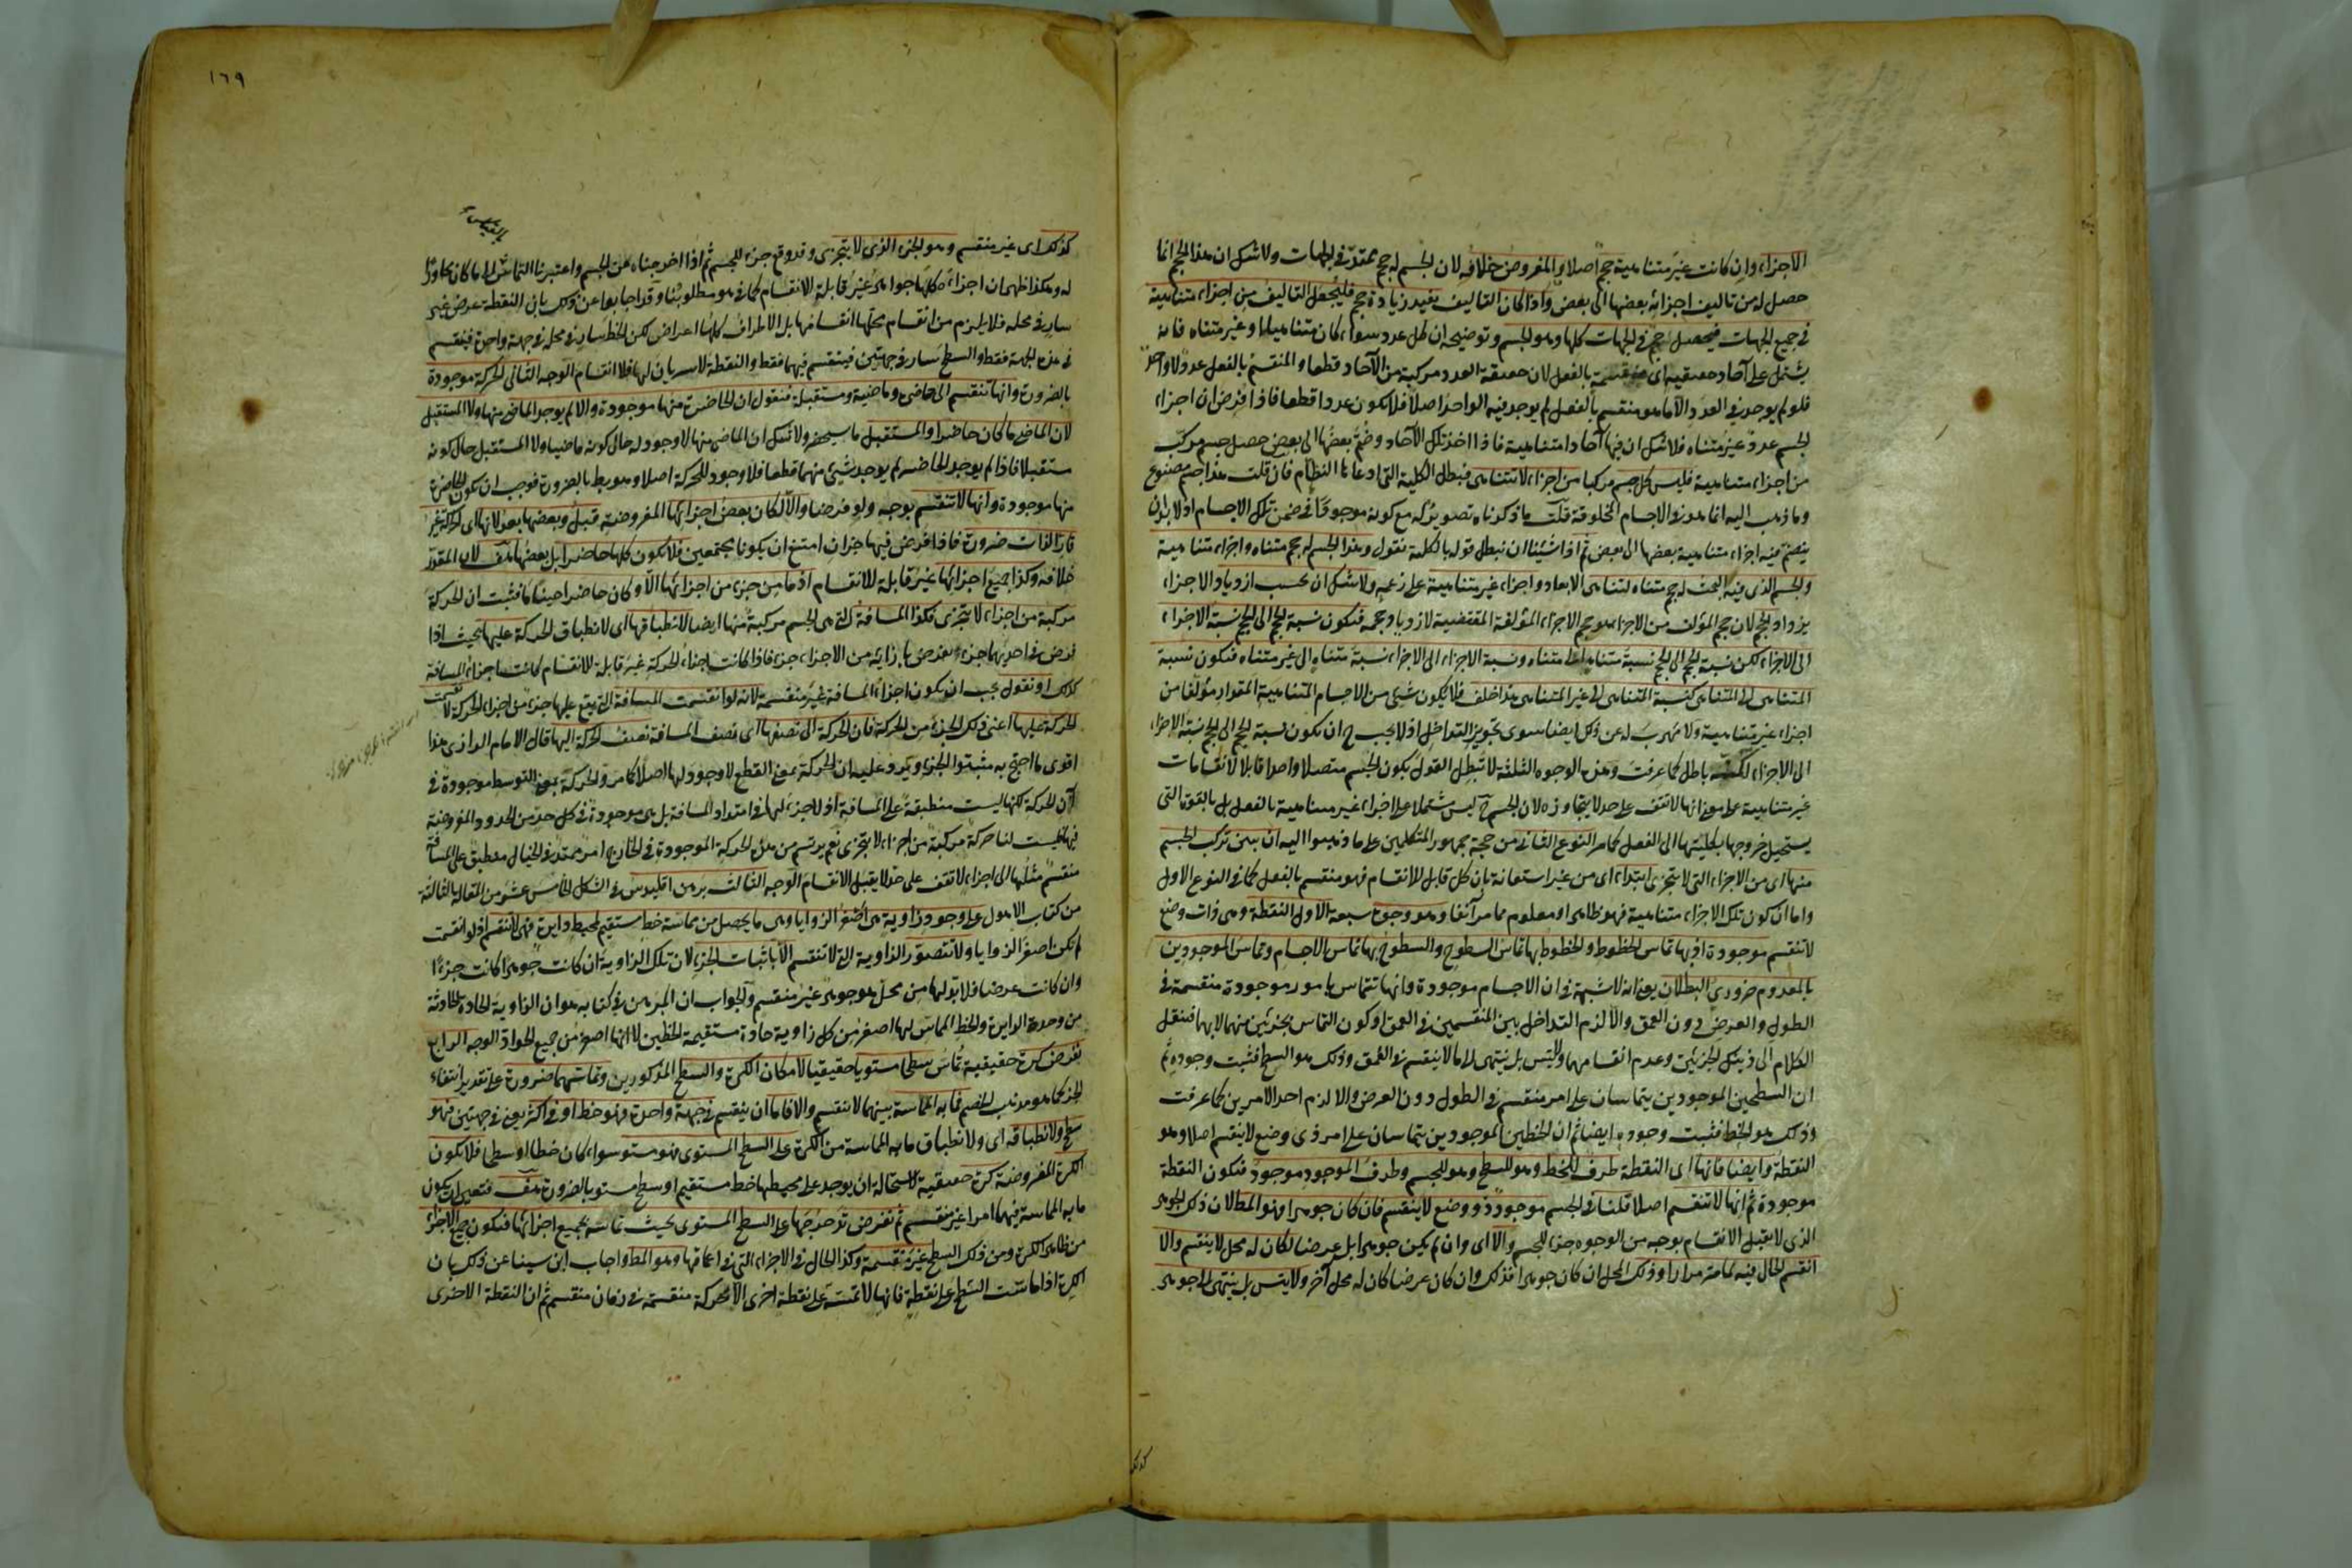 الاجزاء وان كانت غير متناهية حجم اصلا والمفروض خلافه لان الجسم له حجم ممتد في الجهات ولا شك ان هذا الحجم انما
حصل له من تاليف اجزائه بعضها الى بعض واذا كان التاليف يفيد زيادة حجم فليجعل التاليف من اجزاء متناهية
في جميع الجهات فيحصل حجم في الجهات كلها وهو الجسم وتوضيحه ان كل عدد سواء كان متناهيا او غير متناه فانه
يشتمل على آحاد حقيقية اى غير منقسمة بالفعل لان حقيقة العدد مركبة من الآحاد قطعا والمنقسم بالفعل عدد لا واحد
فلو لم يوجد في العدد الا ما هو منقسم بالفعل لم يوجد فيه الواحد اصلا فلا يكون عددا قطعا فاذا فرض ان اجزاء
الجسم عدد غير متناه فلا شك ان فيها آحادا متناهية فاذا اخذ تلك الآحاد وضم بعضها الى بعض حصل جسم مركب
من اجزاء متناهية فليس كل جسم مركبا من اجزاء لا تتناهى فبطل الكلية التي ادعاها النظام فان قلت هذا جسم مصنوع
وما ذهب اليه انما هو في الاجسام المخلوقة قلت ما ذكرناه تصوير له مع كونه موجودا في ضمن تلك الاجسام اذ لا بد ان
ينضم فيه اجزاء متناهية بعضها الى بعض ثم اذا شئنا ان نبطل قوله بالكلية نقول وهذا الجسم له حجم متناه واجزاء متناهية
والجسم الذي فيه البحث له حجم متناه لتناهى الابعاد واجزاء غير متناهية على زعمه ولا شك ان بحسب ازدياد الاجزاء
يزداد الحجم لان حجم المؤلف من الاجزاء هو حجم الاجزاء المؤلفة المقتضية لازدياد حجمه فتكون نسبة الحجم الى الحجم نسبة الاجزاء
الى الاجزاء لكن نسبة الحجم الى الحجم نسبة متناه الى متناه ونسبة الاجزاء الى الاجزاء نسبة متناه الى غير متناه فتكون نسبة
المتناهى الى المتناهى كنسبة المتناهى الى غير المتناهى هذا خلف فلا يكون شيء من الاجسام المتناهية المقدار مؤلفا من
اجزاء غير متناهية ولا مهرب له عن ذلك ايضا سوى تجويز التداخل اذ لا يجب ح ان تكون نسبة الحجم الى الحجم نسبة الاجزاء
الى الاجزاء لكنه باطل كما عرفت وهذه الوجوه الثلثة لا تبطل القول بكون الجسم متصلا واحدا قابلا لانقسامات
غير متناهية على معنى انها لا تقف على حد لا يتجاوزه لان الجسم ح ليس مشتملا على اجزاء غير متناهية بالفعل بل بالقوة التي
يستحيل خروجها بكليتها الى الفعل كما مر النوع الثاني من حجة جمهور المتكلمين على ما ذهبوا اليه ان يبين تركب الجسم
منها اى من الاجزاء التي لا تتجزى ابتداء اى من غير استعانة بان كل قابل للانقسام فهو منقسم بالفعل كما في النوع الاول
واما ان كون تلك الاجزاء متناهية فهو ظاهر او معلوم مما مر آنفا وهو وجوه سبعة الاول النقطة وهى ذات وضع
لا تنقسم موجودة اذ بها تماس الخطوط والخطوط بها تماس السطوح والسطوح بها تماس الاجسام وتماس الموجودين
بالمعدوم ضرورى البطلان يعنى انه لا شبهة في ان الاجسام موجودة وانها تتماس بامور موجودة منقسمة في
الطول والعرض دون العمق والا لزم التداخل بين المنقسمين في العمق او كون التماس بجزئين منهما لا بهما فننقل
الكلام الى ذينك الجزئين وعدم انقسامهما ولا يتس بل ينتهى الى ما لا ينقسم في العمق وذلك هو السطح فثبت وجوده ثم
ان السطحين الموجودين يتماسان على امر منقسم في الطول دون العرض والا لزم احد الامرين كما عرفت
وذلك هو الخط فثبت وجوده ايضا ثم ان الخطين الموجودين يتماسان على امر ذى وضع لا ينقسم اصلا وهو
النقطة وايضا فانها اى النقطة طرف للخط وهو للسطح وهو للجسم وطرف الموجود موجود فتكون النقطة
موجودة ثم انها لا تنقسم اصلا قلنا في الجسم موجود ذو وضع لا ينقسم فان كان جوهرا فهو المط لان ذلك الجوهر
الذى لا يقبل الانقسام بوجه من الوجوه جزء للجسم والا اى وان لم يكن جوهرا بل عرضا لكان له محل لا ينقسم والا
انقسم الحال فيه كما مر مرارا وذلك المحل ان كان جوهرا فذلك وان كان عرضا كان له محل آخر ولا يتس بل ينتهى الى جوهر
كذلك
١٦٩
كذلك اى غير منقسم وهو الجزء الذى لا يتجزى وقد وقع جزء للجسم ثم اذا اخرجناه عن الجسم واعتبرنا التماس الى ما كان مجاورا
له وهكذا ظهر ان اجزاءه كلها جواهر غير قابلة للانقسام كما هو مطلوبنا وقد اجابوا عن ذلك بان النقطة عرض غير
سار في محله فلا يلزم من انقسام محلها انقسامها بل الاطراف كلها اعراض لكن الخط سار في محله في جهة واحدة فينقسم
في هذه الجهة فقط والسطح سار في جهتين فينقسم فيهما فقط والنقطة لا سريان لها فلا انقسام الوجه الثاني الحركة موجودة
بالضرورة وانها تنقسم الى حاضرة وماضية ومستقبلة فنقول ان الحاضرة منها موجودة والا لم يوجد الماضى منها ولا المستقبل
لان الماضى ما كان حاضرا والمستقبل ما سيحضر ولا شك ان الماضى منها لا وجود له حال كونه ماضيا ولا المستقبل حال كونه
مستقبلا فاذا لم يوجد الحاضر لم يوجد شيء منهما قطعا فلا وجود للحركة اصلا وهو بط بالضرورة فوجب ان يكون الحاضرة
منها موجودة وانها لا تنقسم بوجه ولو فرضا والا لكان بعض اجزائها المفروضة قبل وبعضها بعد لانها اى الحركة غير
قارة الذات ضرورة فاذا فرض فيها جزآن امتنع ان يكونا مجتمعين فلا يكون كلها حاضرا بل بعضها هف لان المقدر
خلافه وكذا جميع اجزائها غير قابلة للانقسام اذ ما من جزء من اجزائها الا وكان حاضرا حينا ما فثبت ان الحركة
مركبة من اجزاء لا تتجزى فكذا المسافة التي هى الجسم مركبة منها ايضا لانطباقها اى لانطباق الحركة عليها بحيث اذا
فرض في احديهما جزء يفرض بازائه من الاجزاء جزء فاذا كانت اجزاء الحركة غير قابلة للانقسام كانت اجزاء المسافة
كذلك او نقول يجب ان يكون اجزاء المسافة غير منقسمة لانه لو انقسمت المسافة التي يقع عليها جزء من اجزاء الحركة لانقسمت
الحركة عليها اعنى ذلك الجزء من الحركة فان الحركة الى نصفها اى نصف المسافة نصف الحركة اليها قال الامام الرازى هذا
اقوى ما احتج به مثبتوا الجزء ويرد عليه ان الحركة بمعنى القطع لا وجود لها اصلا كما مر والحركة بمعنى التوسط موجودة في
آن الحركة لكنها ليست منطبقة على المسافة اذ لا جزء لها في امتداد المسافة بل هى موجودة في كل حد من الحدود المفروضة
فيها فليست لنا حركة مركبة من اجزاء لا تتجزى نعم يرتسم من هذه الحركة الموجودة في الخارج امر ممتد في الخيال منطبق على المسافة
منقسم مثلها الى اجزاء لا تقف على حد لا يقبل الانقسام الوجه الثالث برهن اقليدس في الشكل الخامس عشر من المقالة الثالثة
من كتاب الاصول على وجود زاوية هى اصغر الزوايا وهى ما يحصل من مماسة خط مستقيم لمحيط دايرة فهى لا تنقسم اذ لو انقسمت
لم تكن اصغر الزوايا ولا تتصور الزاوية التي لا تنقسم الا باثبات الجزء لان تلك الزاوية ان كانت جوهرا كانت جزءا
وان كانت عرضا فلا بد لها من محل جوهر غير منقسم والجواب ان المبرهن في كتابه هو ان الزاوية الحادة الحادثة
من حدبة الدايرة والخط المماس لها اصغر من كل زاوية حادة مستقيمة الخطين لا انها اصغر من جميع الحواد الوجه الرابع
نفرض كرة حقيقية تماس سطحا مستويا حقيقيا لامكان الكرة والسطح المذكورين وتماسهما ضرورة على تقدير انتفاء
الجزء كما هو مذهب الخصم فما به المماسة بينهما لا ينقسم والا فاما ان ينقسم في جهة واحدة وهو خط او في اكثر يعنى في جهتين فهو
سطح ولانطباقه اى ولانطباق ما به المماسة من الكرة على السطح المستوى فهو مستو سواء كان خطا او سطحا فلا يكون
الكرة المفروضة كرة حقيقية لاستحالة ان يوجد على محيطها خط مستقيم او سطح مستو بالضرورة هف فتعين ان يكون
ما به المماسة فيهما امرا غير منقسم ثم نفرض تدحرجها على السطح المستوى بحيث تماسه بجميع اجزائها فتكون جميع الاجزاء
من ظاهر الكرة ومن ذلك السطح غير منقسمة وكذا الحال في الاجزاء التي في اعماقها وهو المط واجاب ابن سينا عن ذلك بان
الكرة اذا ماست السطح على نقطة فانها لا تمسه على نقطة اخرى الا بحركة منقسمة في زمان منقسم ثم ان النقطة الاخرى